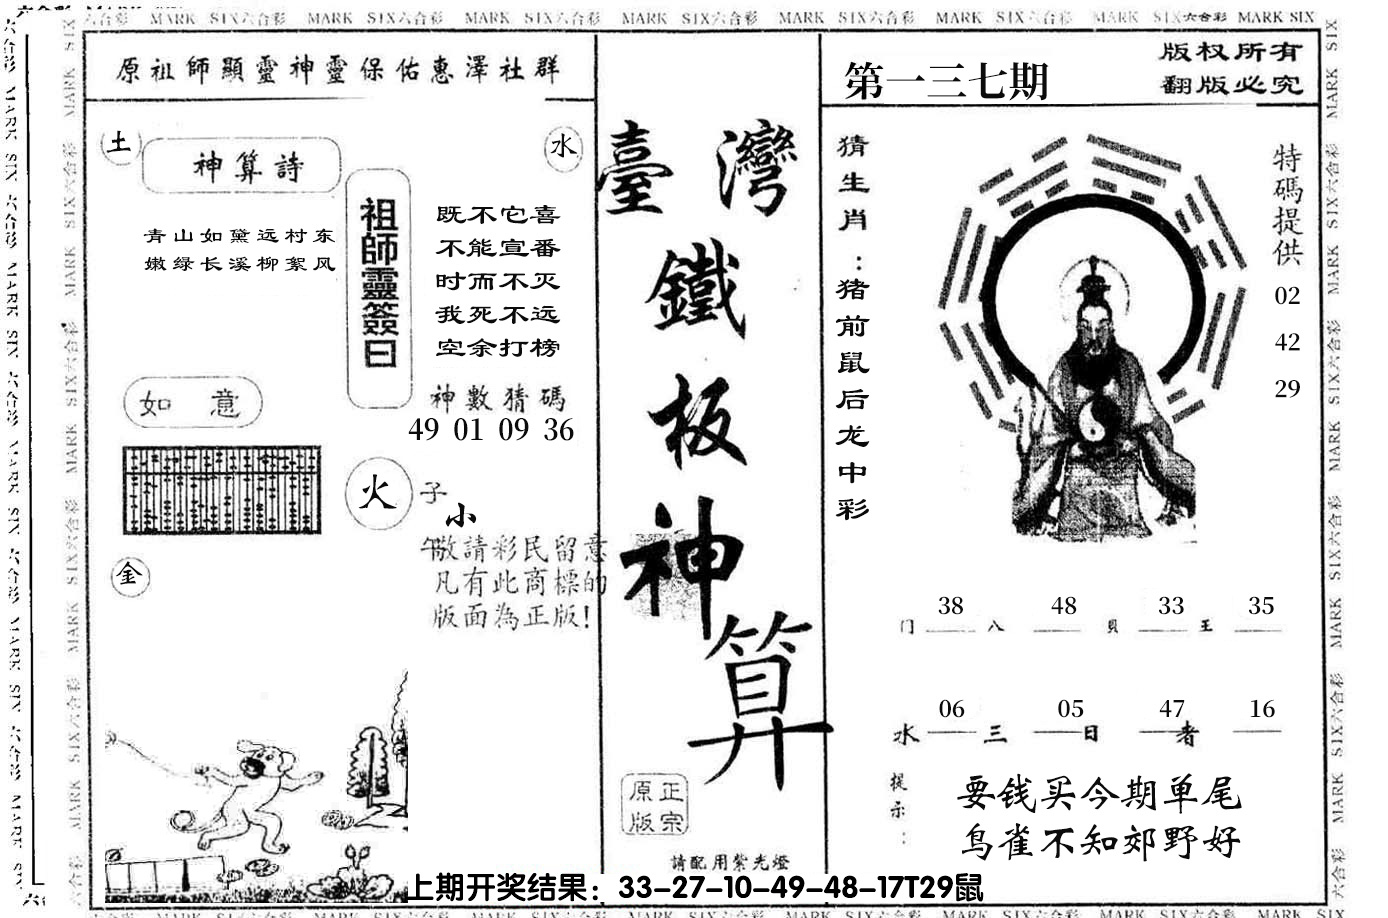 六合彩 MARK SIX六合彩 MARK SIX六合彩 MARK SIX六合彩 MARK SIX六合彩 MARK SIX六合彩 MARK SIX六合彩 MARK SIX六合彩 MARK SIX
原祖師顯靈神靈保佑惠澤社群
土
神算詩
水
青山如黛远村东
嫩绿长溪柳絮风
祖師靈簽曰
既不它喜
不能宣番
时而不灭
我死不远
空余打榜
神數猜碼
49 01 09 36
如意
火
子
小
午敬請彩民留意
凡有此商標的
版面為正版!
金
臺灣
鐵
板
神
算
原正
版宗
請配用紫光燈
第一三七期
版权所有
翻版必究
猜生肖:猪前鼠后龙中彩
特碼提供
02
42
29
38 48 33 35
门 八 貝 王
06 05 47 16
水 三 日 者
提示:
要钱买今期单尾
鸟雀不知郊野好
上期开奖结果：33-27-10-49-48-17T29鼠